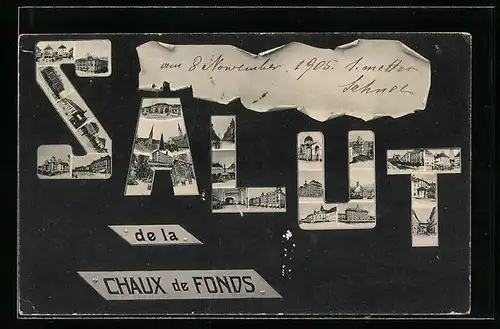 am 8 November 1905.
Schnee
SALUT
de la
CHAUX de FONDS